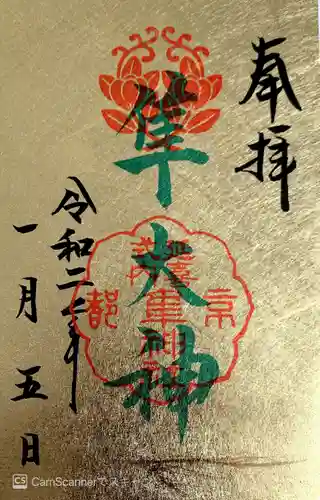 奉拝
隼大神
京都
令和二年
一月五日
CS CamScannerでスキャン